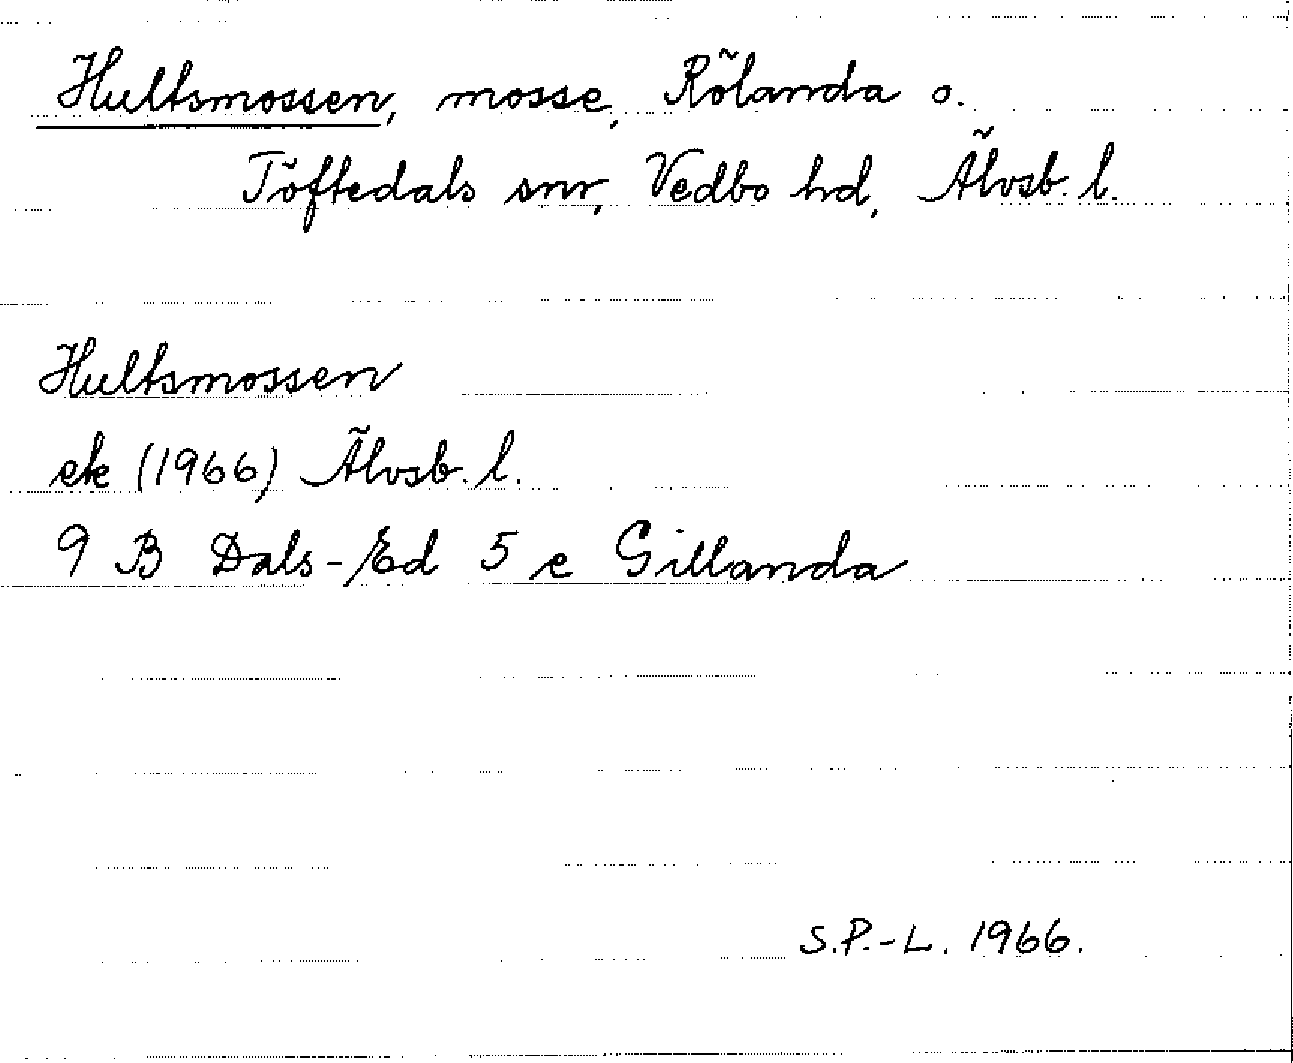 Hultsmossen, mosse, Rölanda o.
Töftedals snr, Vedbo hd, Älvsb. l.
Hultsmossen
ek (1966) Älvsb. l.
9 B Dals-Ed 5 e Gillanda
S.P.-L. 1966.